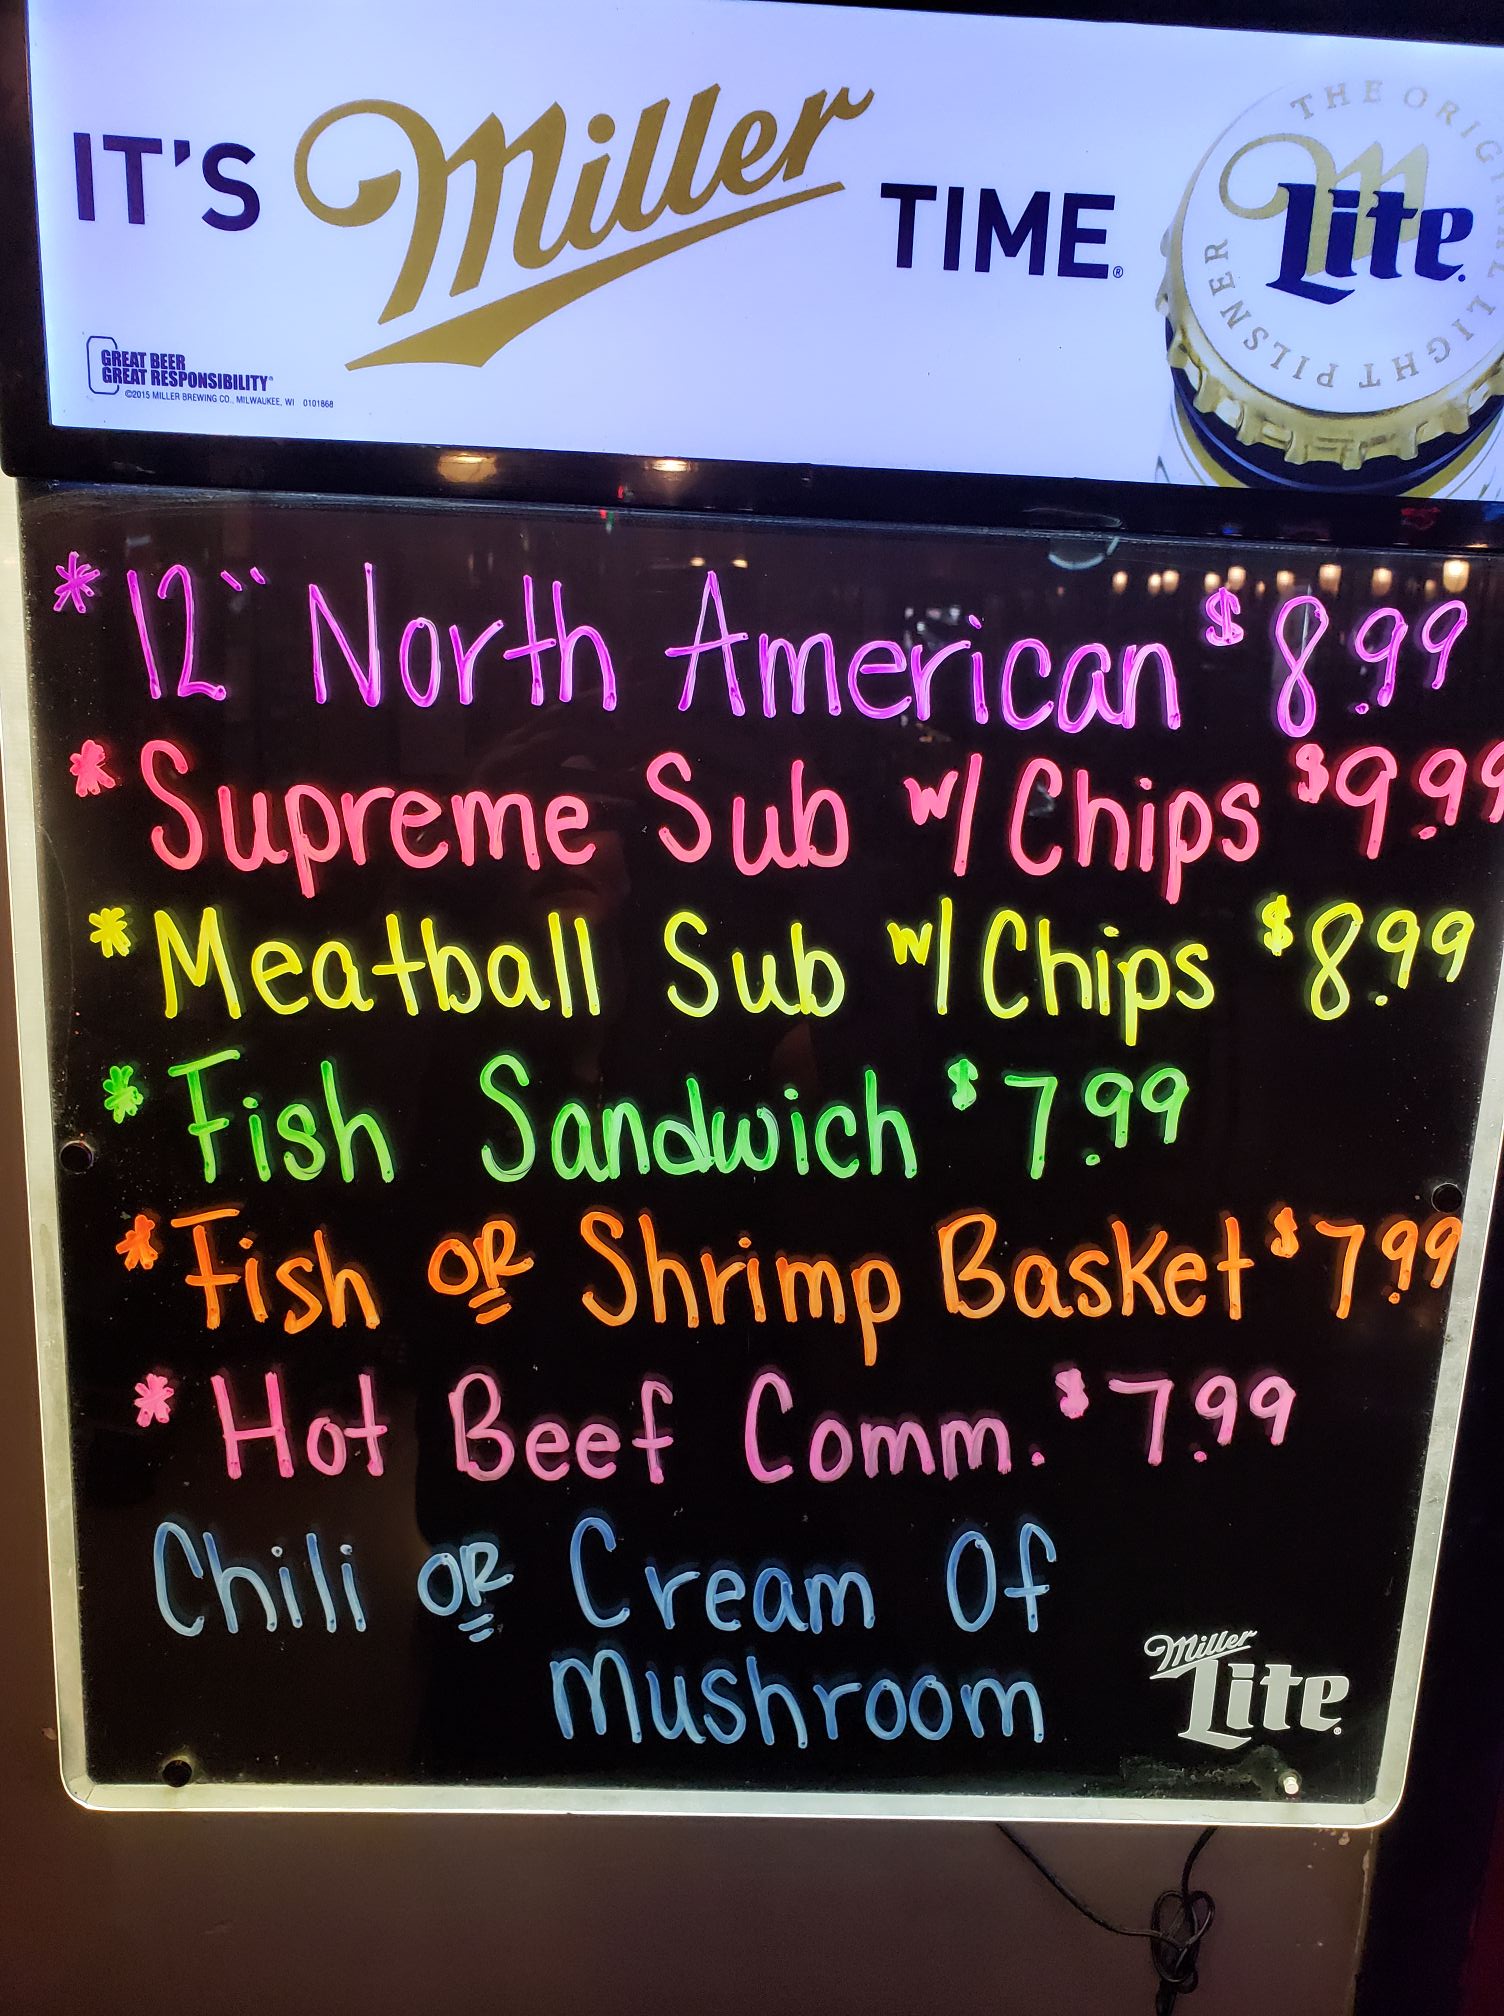 IT'S Miller TIME.®
THE ORIGINAL LIGHT PILSNER
Lite
GREAT BEER
GREAT RESPONSIBILITY®
©2015 MILLER BREWING CO., MILWAUKEE, WI 0101868
* 12" North American $8.99
* Supreme Sub w/ Chips $9.99
* Meatball Sub w/ Chips $8.99
* Fish Sandwich $7.99
* Fish OR Shrimp Basket $7.99
* Hot Beef Comm. $7.99
Chili OR Cream Of
Mushroom
Miller
Lite